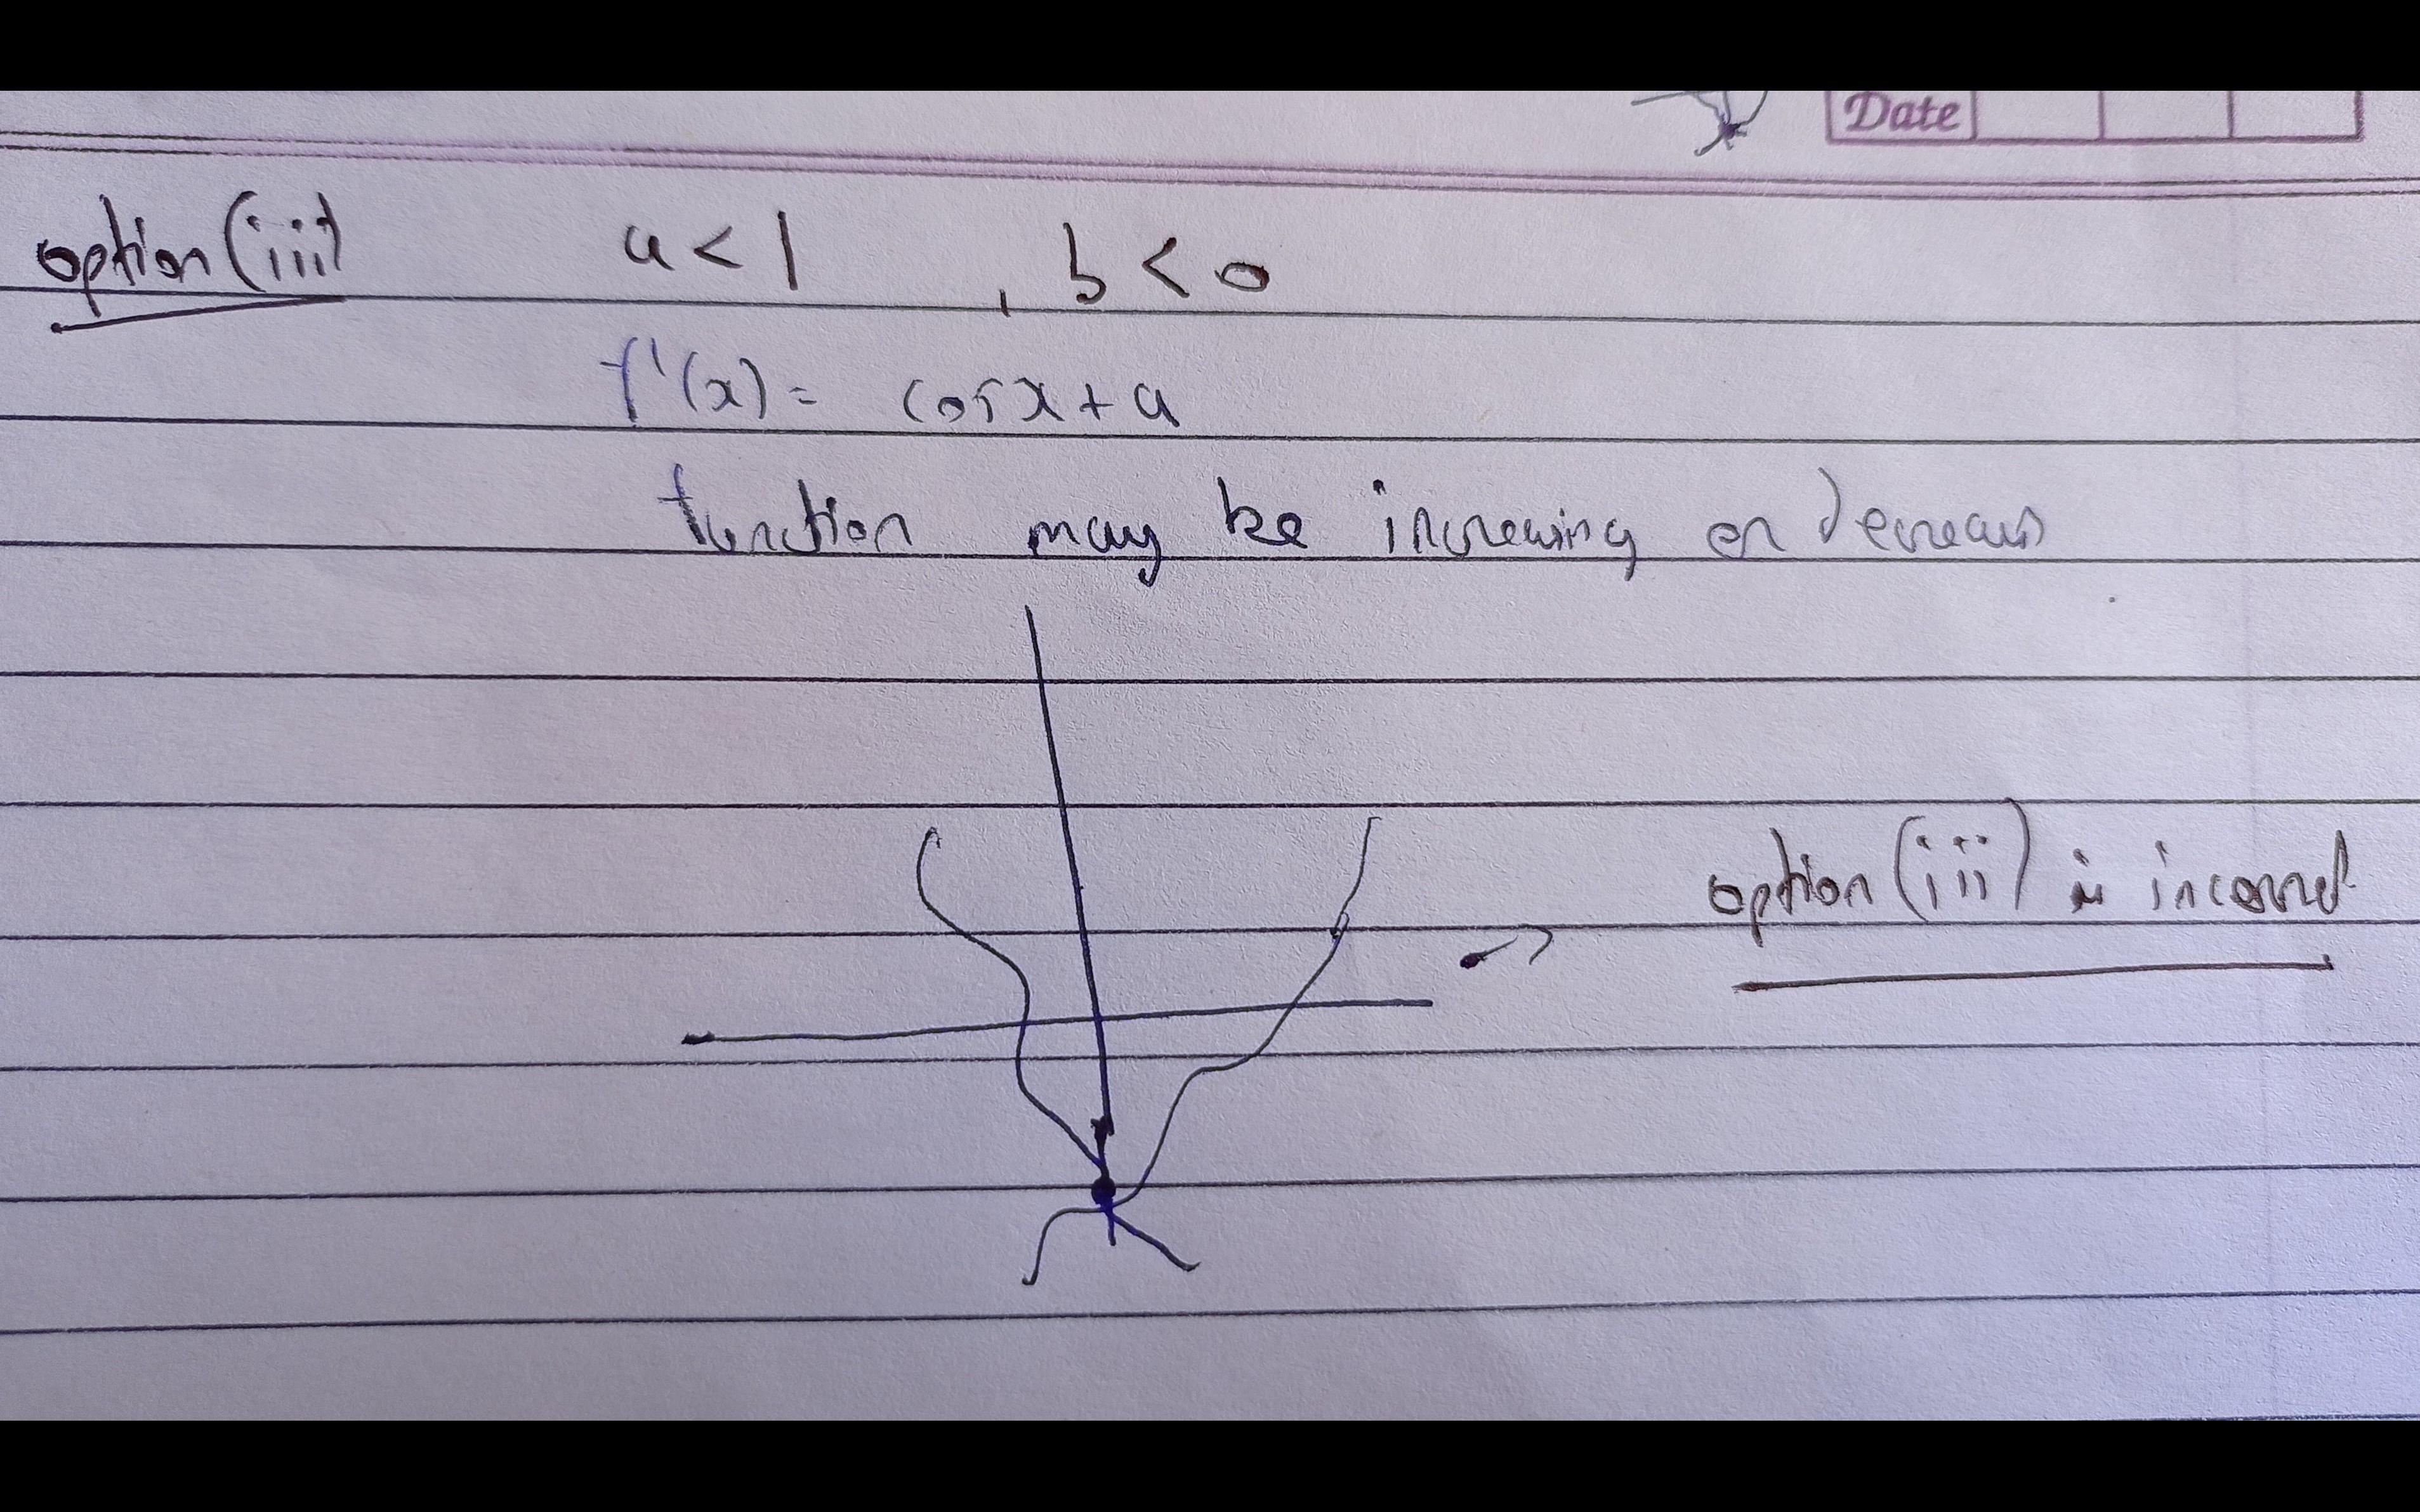 Date
option (iii) a < 1 , b < 0
f'(x) = cosx + a
function may be increasing or decreasing
option (iii) is incorrect